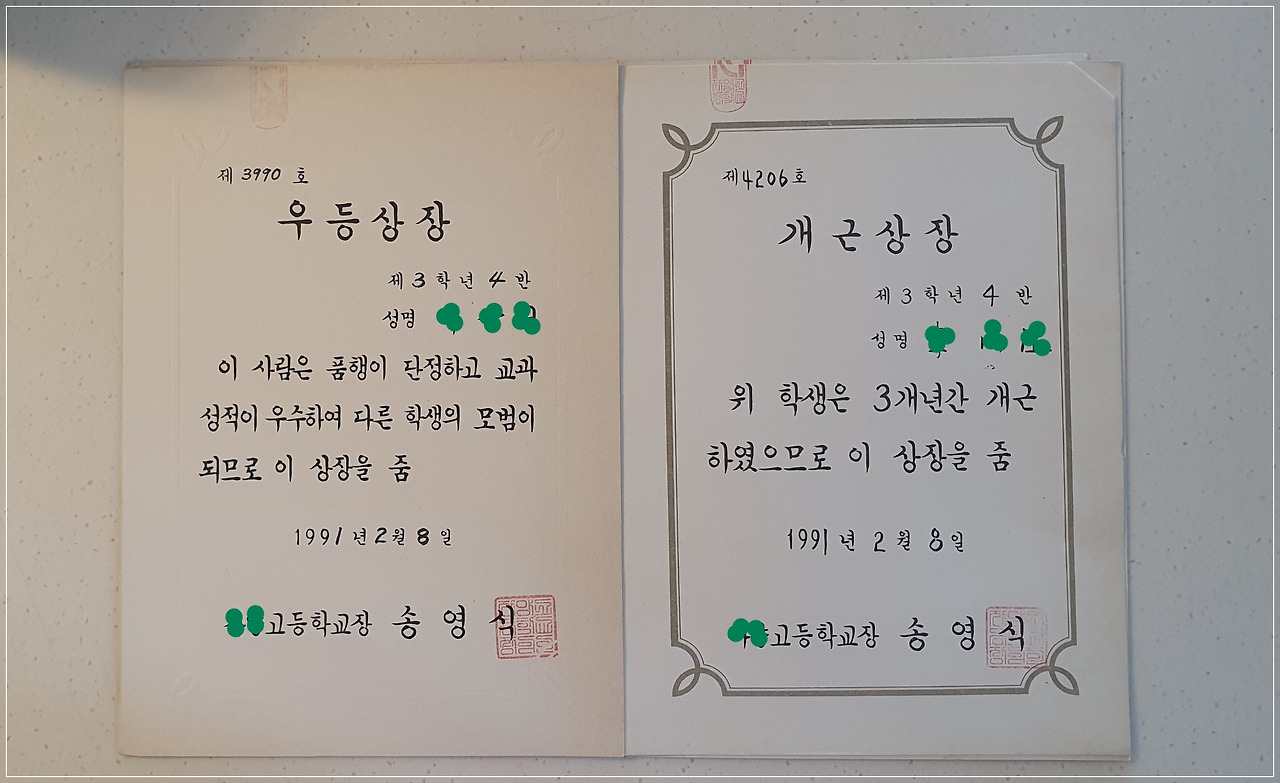 제 3990 호
우등상장
제 3 학년 4 반
성명
이 사람은 품행이 단정하고 교과
성적이 우수하여 다른 학생의 모범이
되므로 이 상장을 줌
1991 년 2 월 8 일
고등학교장 송영식
제 4206 호
개근상장
제 3 학년 4 반
성명
위 학생은 3개년간 개근
하였으므로 이 상장을 줌
1991 년 2 월 8 일
고등학교장 송영식